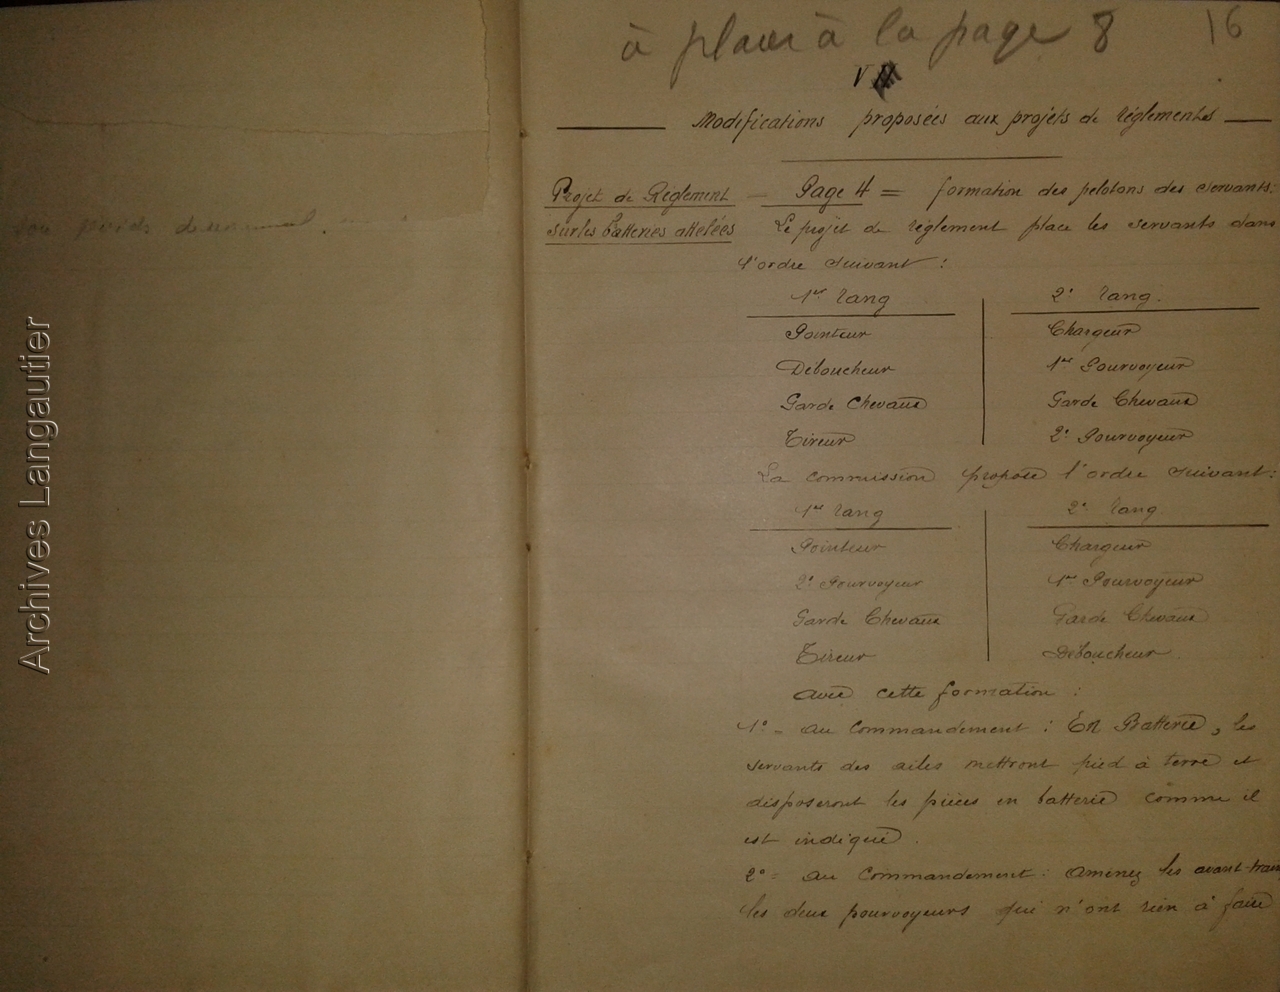 à placer à la page 8
16
V
Modifications proposées aux projets de réglements
Projet de Réglement
sur les batteries attelées
Page 4 = formation des pelotons des servants.
Le projet de réglement place les servants dans
l'ordre suivant :
1er rang
2e rang.
Pointeur
Chargeur
Déboucheur
1er Pourvoyeur
Garde Chevaux
Garde Chevaux
Tireur
2e Pourvoyeur
La commission propose l'ordre suivant :
1er rang
2e rang
Pointeur
Chargeur
2e Pourvoyeur
1er Pourvoyeur
Garde Chevaux
Garde Chevaux
Tireur
Déboucheur
avec cette formation :
1° = au commandement : En Batterie, les
servants des ailes mettront pied à terre et
disposeront les pièces en batterie comme il
est indiqué.
2° = au commandement : amenez les avant-train
les deux pourvoyeurs qui n'ont rien à faire
Archives Langautier